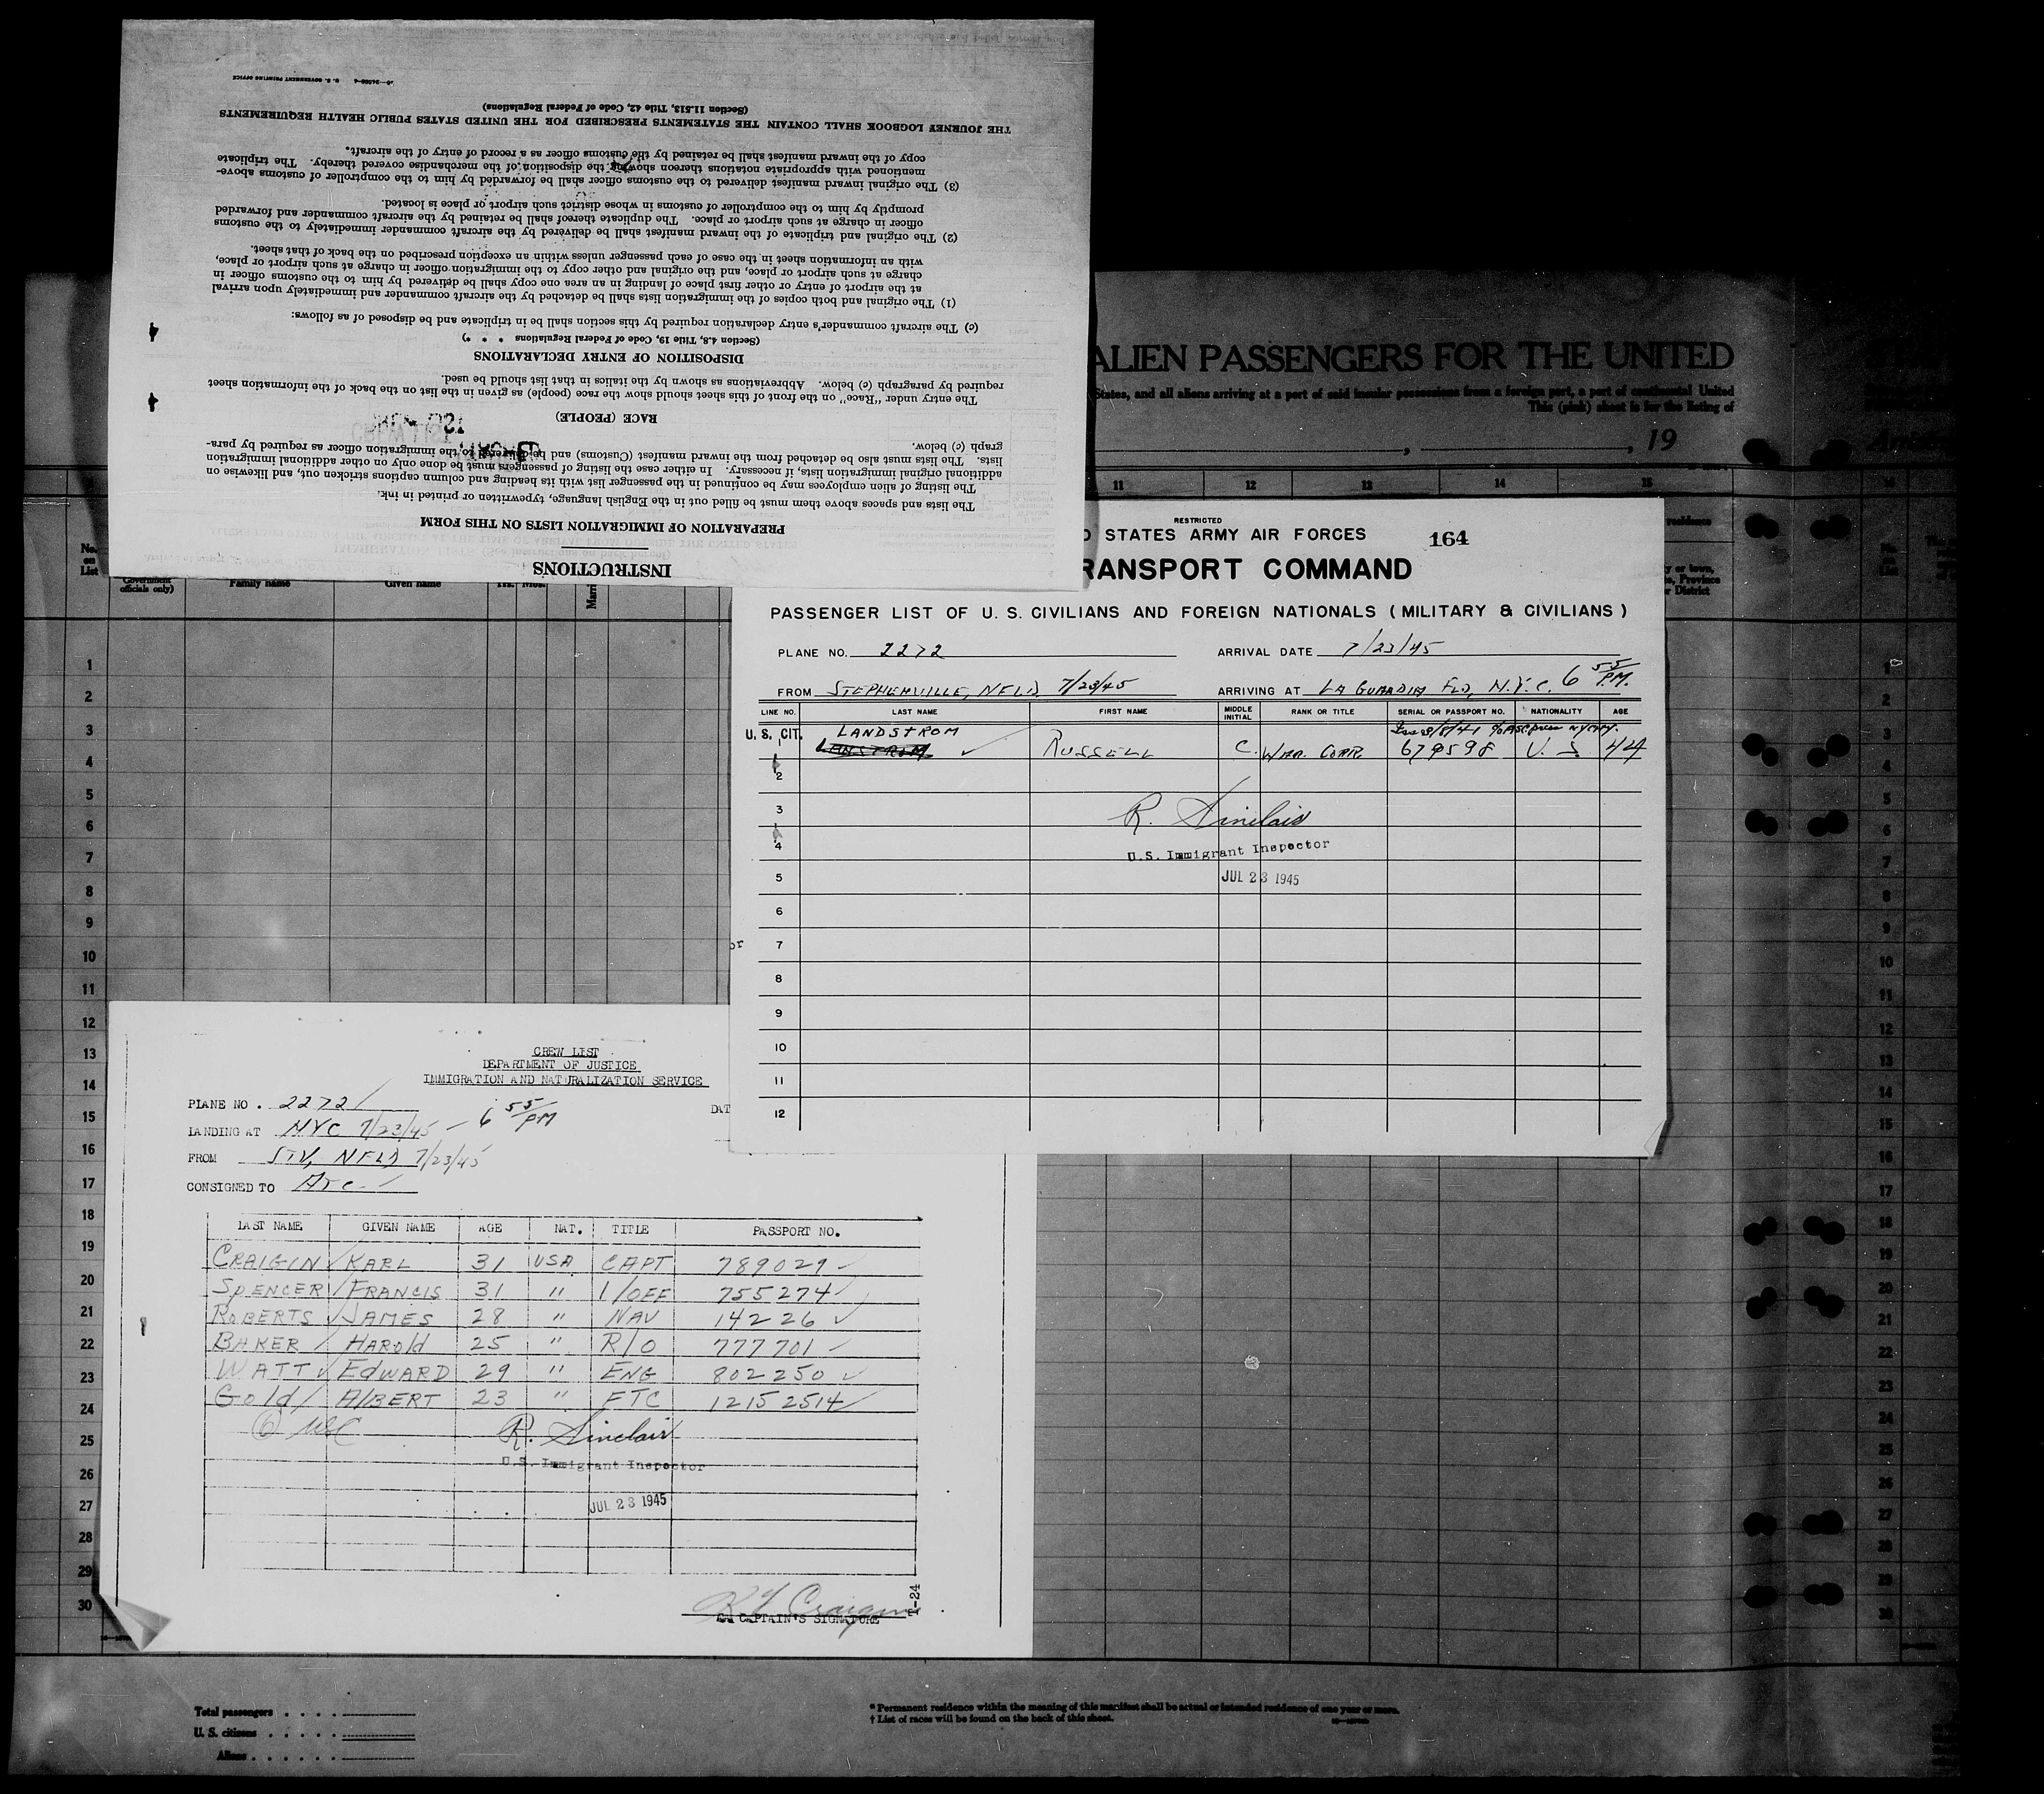 INSTRUCTIONS
PREPARATION OF IMMIGRATION LISTS ON THIS FORM
The lists and spaces above them must be filled out in the English language, typewritten or printed in ink.
The listing of alien employees may be continued in the passenger list with its heading and column captions stricken out, and likewise on
additional original immigration lists, if necessary. In either case the listing of passengers must be done only on other additional immigration
lists. The lists must also be detached from the inward manifest (Customs) and be delivered to the immigration officer as required by para-
graph (c) below.
RACE (PEOPLE)
The entry under "Race" on the front of this sheet should show the race (people) as given in the list on the back of the information sheet
required by paragraph (c) below. Abbreviations as shown by the italics in that list should be used.
DISPOSITION OF ENTRY DECLARATIONS
(Section 4.8, Title 19, Code of Federal Regulations * * *)
(c) The aircraft commander's entry declaration required by this section shall be in triplicate and be disposed of as follows:
(1) The original and both copies of the immigration lists shall be detached by the aircraft commander and immediately upon arrival
at the airport of entry or other first place of landing in an area one copy shall be delivered by him to the customs officer in
charge at such airport or place, and the original and other copy to the immigration officer in charge at such airport or place,
with an information sheet in the case of each passenger unless within an exception prescribed on the back of that sheet.
(2) The original and triplicate of the inward manifest shall be delivered by the aircraft commander immediately to the customs
officer in charge at such airport or place. The duplicate thereof shall be retained by the aircraft commander and forwarded
promptly by him to the comptroller of customs in whose district such airport or place is located.
(3) The original inward manifest delivered to the customs officer shall be forwarded by him to the comptroller of customs above-
mentioned with appropriate notations thereon showing the disposition of the merchandise covered thereby. The triplicate
copy of the inward manifest shall be retained by the customs officer as a record of entry of the aircraft.
THE JOURNEY LOGBOOK SHALL CONTAIN THE STATEMENTS PRESCRIBED FOR THE UNITED STATES PUBLIC HEALTH REQUIREMENTS
(Section 11.513, Title 42, Code of Federal Regulations)
U. S. GOVERNMENT PRINTING OFFICE
ALIEN PASSENGERS FOR THE UNITED
States, and all aliens arriving at a port of said insular possessions from a foreign port, a port of continental United
This (pink) sheet is for the listing of
, 19
11 12 13 14 15
No. on List
Government officials only)
Family name
Given name
Yrs. Mos.
residence
y or town,
Province
or District
RESTRICTED
D STATES ARMY AIR FORCES 164
RANSPORT COMMAND
PASSENGER LIST OF U. S. CIVILIANS AND FOREIGN NATIONALS (MILITARY & CIVILIANS)
PLANE NO. 2272 ARRIVAL DATE 7/23/45
FROM STEPHENVILLE, NFLD. 7/23/45 ARRIVING AT LA GUARDIA FLD, N.Y.C. 6 55 P.M.
LINE NO. LAST NAME FIRST NAME MIDDLE INITIAL RANK OR TITLE SERIAL OR PASSPORT NO. NATIONALITY AGE
U. S. CIT. LANDSTROM
1 LANSTROM RUSSELL C. WAR. CORR. 679598 U. S 44
2
3
R. Sinclair
4
U.S. Immigrant Inspector
5
JUL 23 1945
6
7
8
9
10
11
12
CREW LIST
DEPARTMENT OF JUSTICE
IMMIGRATION AND NATURALIZATION SERVICE
PLANE NO. 2272
DAT
LANDING AT NYC 7/23/45 – 6 55 PM
FROM STV, NFLD 7/23/45
CONSIGNED TO ATC
LAST NAME GIVEN NAME AGE NAT. TITLE PASSPORT NO.
CRAIGIN KARL 31 USA CAPT 789029
SPENCER FRANCIS 31 " 1/OFF 755274
ROBERTS JAMES 28 " NAV 14226
BAKER HAROld 25 " R/O 777701
WATT EdWARD 29 " ENG 802250
Gold AlBERT 23 " FTC 12152514
R. Sinclair
U.S. Immigrant Inspector
JUL 23 1945
K Y Craigin
CAPTAIN'S SIGNATURE
T-24
1
2
3
4
5
6
7
8
9
10
11
12
13
14
15
16
17
18
19
20
21
22
23
24
25
26
27
28
29
30
Total passengers
U. S. citizens
Aliens
* Permanent residence within the meaning of this manifest shall be actual or intended residence of one year or more.
† List of races will be found on the back of this sheet.